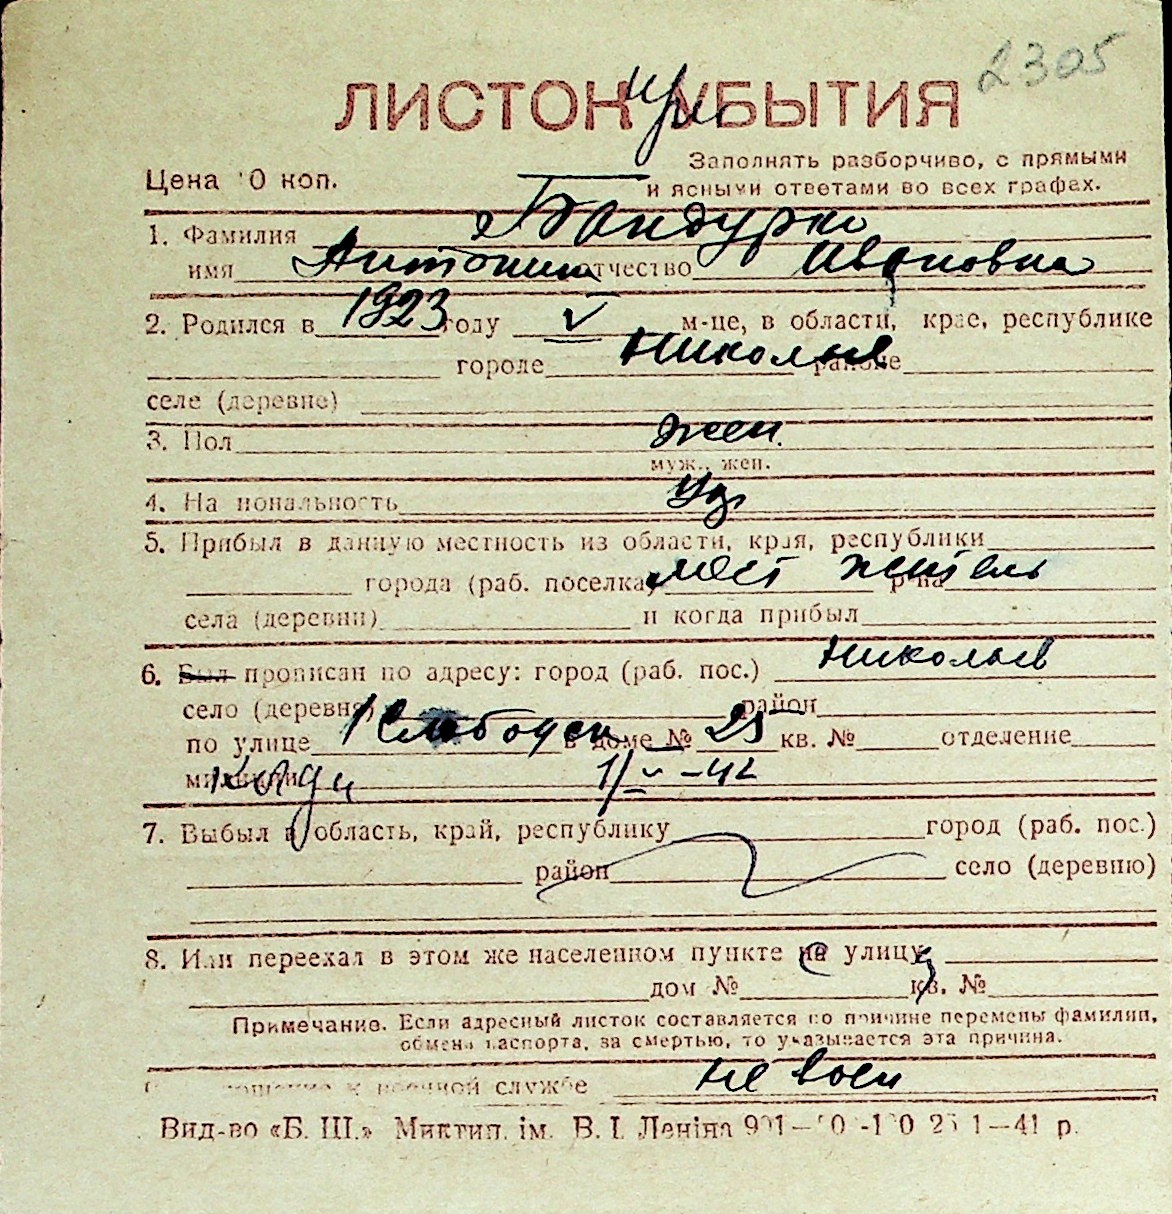 2305
ЛИСТОК при УБЫТИЯ
Заполнять разборчиво, с прямыми
Цена 10 коп. и ясными ответами во всех графах.
1. Фамилия Бандурко
имя Антонина отчество Ивановна
2. Родился в 1923 году V м-це, в области, крае, республике
городе Николаев районе
селе (деревне)
3. Пол жен.
муж., жен.
4. Национальность Укр
5. Прибыл в данную местность из области, края, республики
города (раб. поселка) мест житель р-на
села (деревни) и когда прибыл
6. Был прописан по адресу: город (раб. пос.) Николаев
село (деревня) район
по улице 1 Слободск в доме № 25 кв. № отделение
милиции 1/V-42
7. Выбыл в область, край, республику город (раб. пос.)
район село (деревню)
8. Или переехал в этом же населенном пункте на улицу
дом № кв. №
Примечание. Если адресный листок составляется по причине перемены фамилии,
обмена паспорта, за смертью, то указывается эта причина.
Отношение к военной службе не воен
Вид-во «Б. Ш.» Миктип. ім. В. І. Леніна 1—41 р.